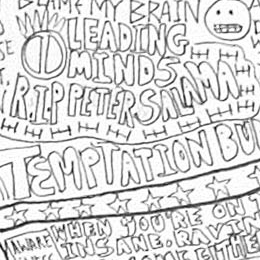 BLAME MY BRAIN
LEADING
MINDS
R.I.P PETER SALAMA
TEMPTATION BU
WHEN YOU'RE ON
AWARE INSANE. RAVIN